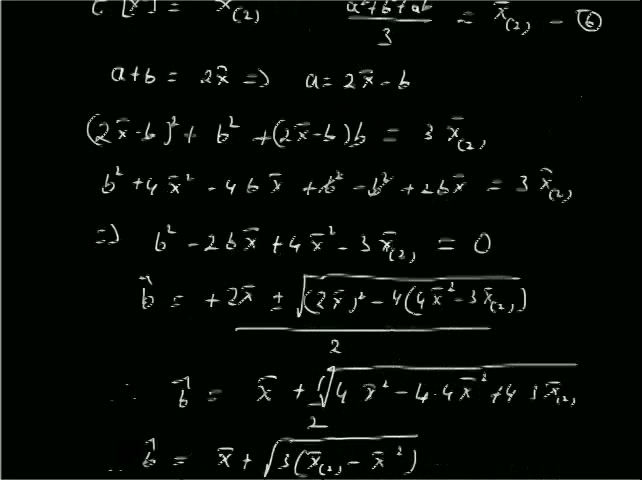 E[X²] = x̄₍₂₎   (a²+b²+ab)/3 = x̄₍₂₎ - ⑥
a+b = 2x̄ => a = 2x̄-b
(2x̄-b)² + b² + (2x̄-b)b = 3 x̄₍₂₎
b² + 4x̄² - 4bx̄ + b² - b² + 2bx̄ = 3 x̄₍₂₎
=> b² - 2bx̄ + 4x̄² - 3x̄₍₂₎ = 0
b̂ = (+2x̄ ± √((2x̄)² - 4(4x̄² - 3x̄₍₂₎)))/2
∴ b̂ = x̄ + (1/2)√(4x̄² - 4·4x̄² + 4 3x̄₍₂₎
∴ b̂ = x̄ + √(3(x̄₍₂₎ - x̄²))